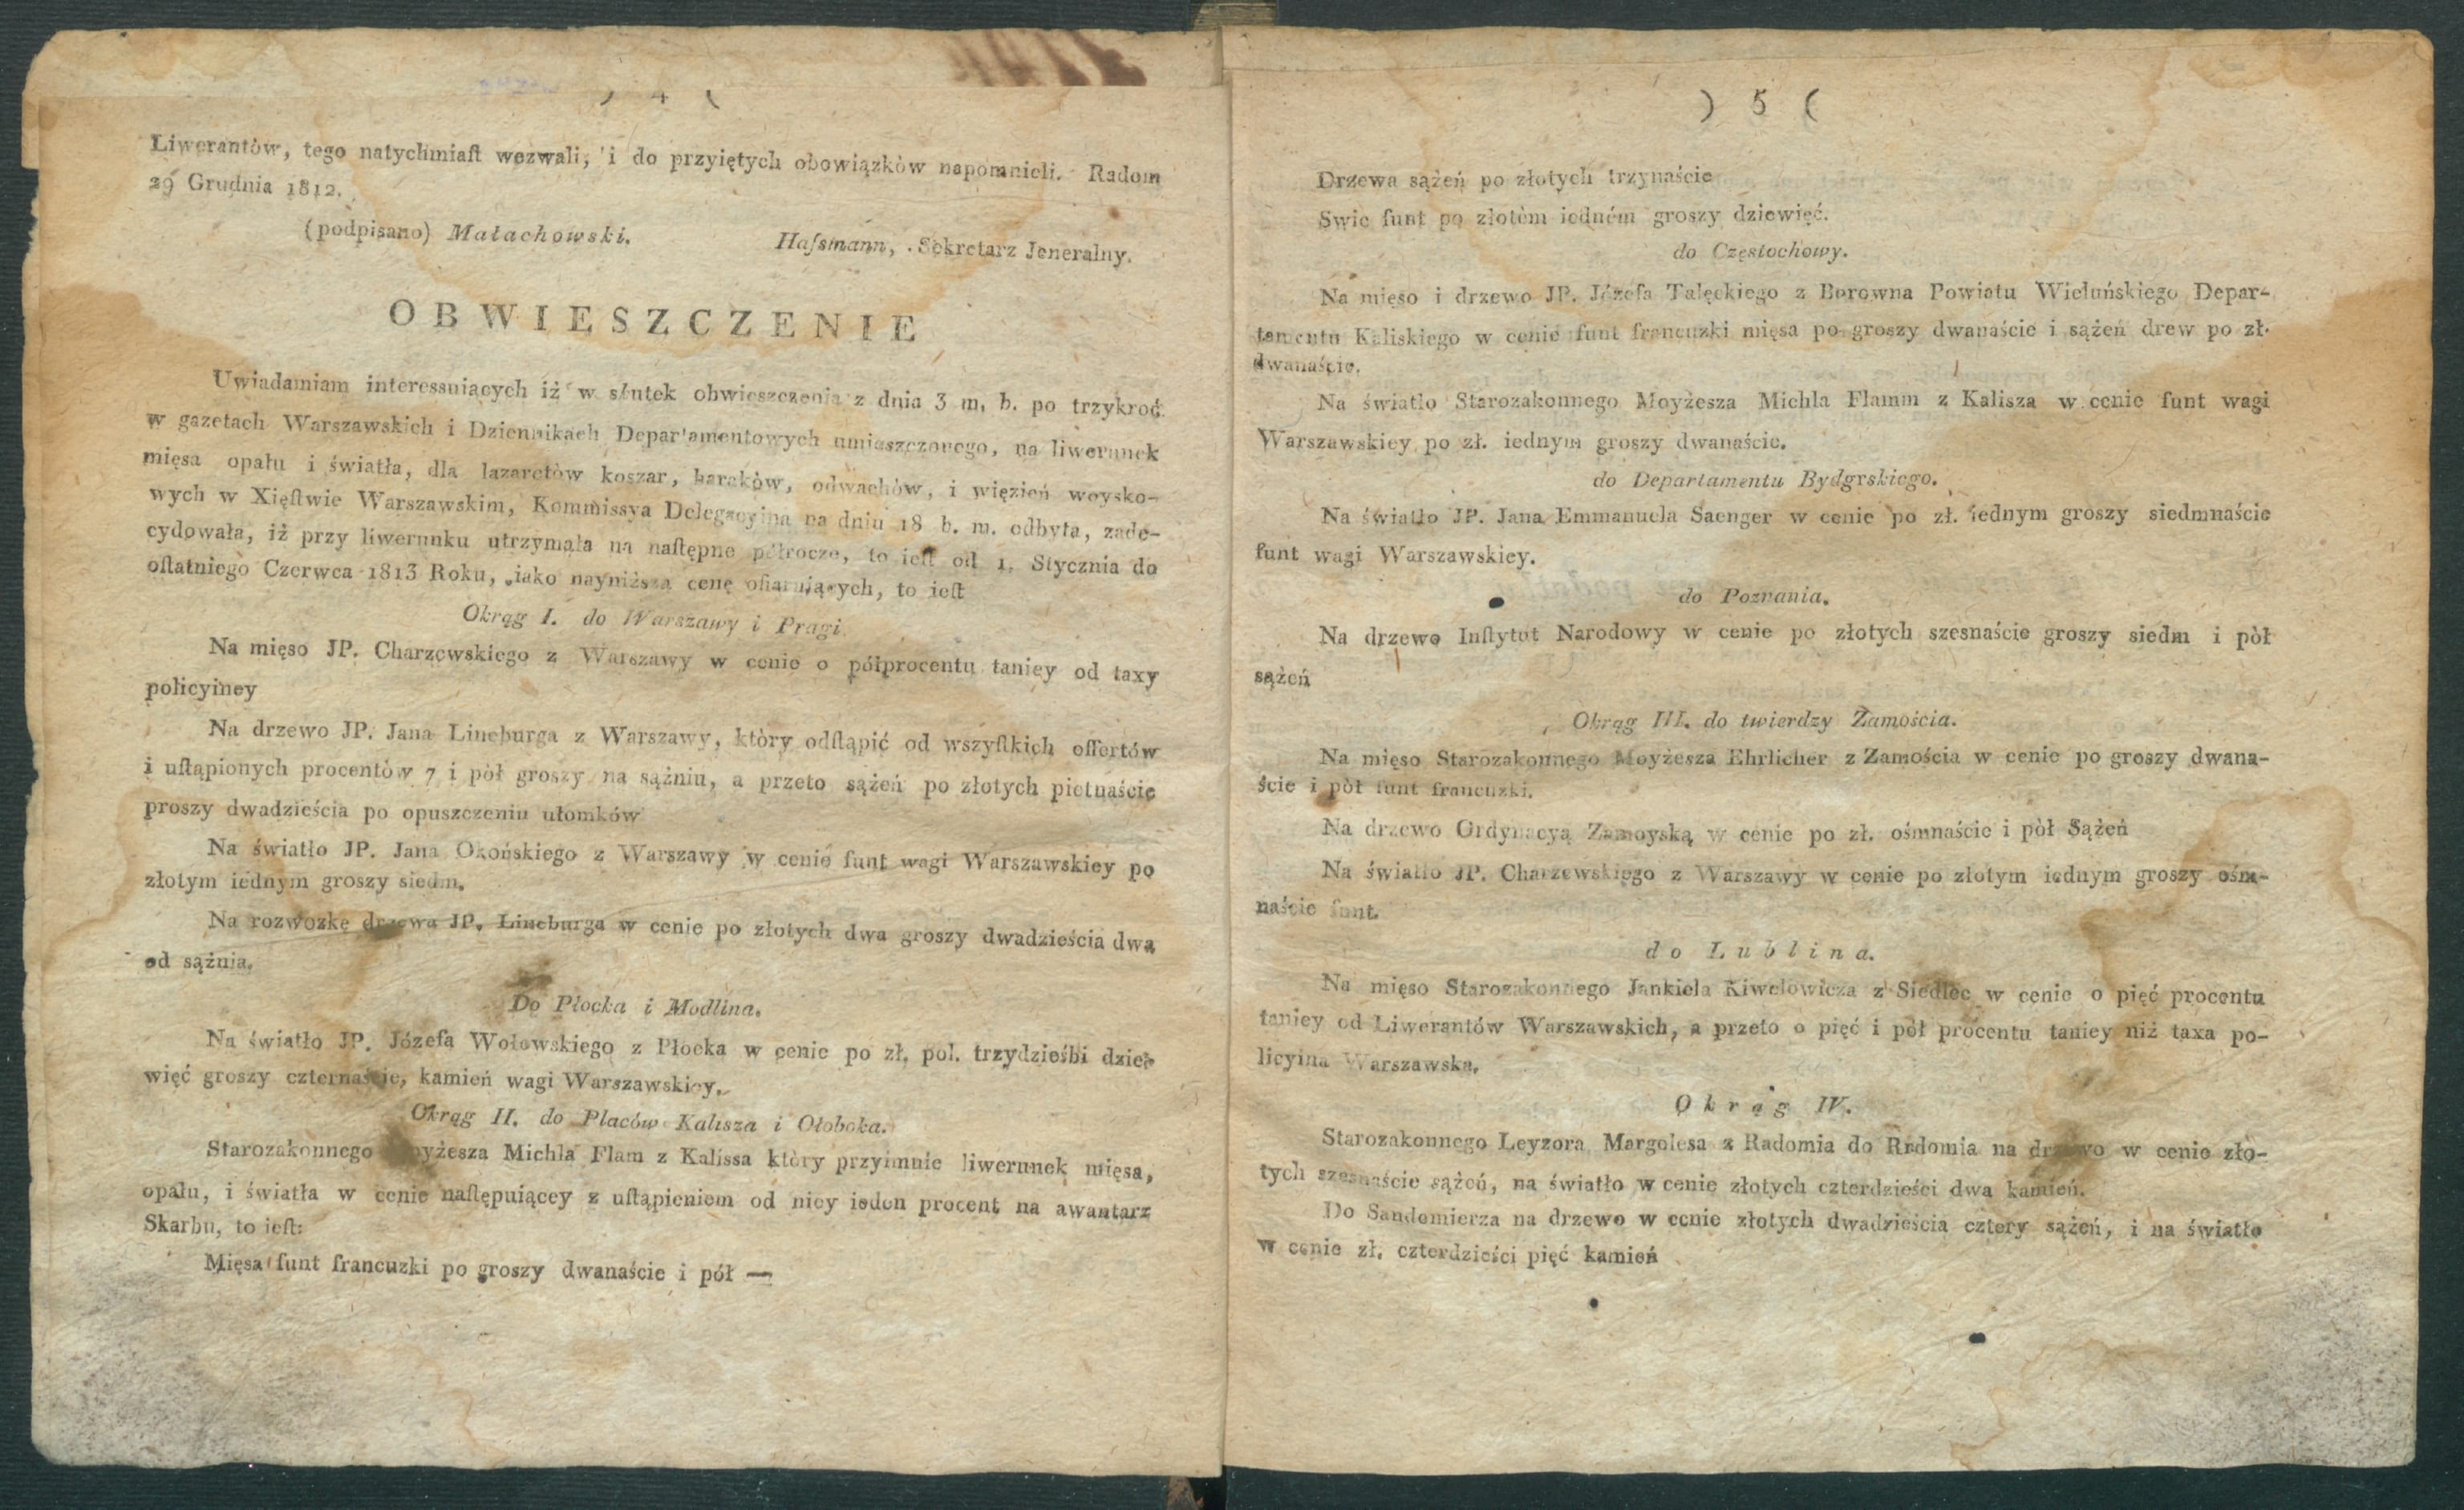 ) 4 (
Liwerantòw, tego natychmiaſt wezwali, i do przyiętych obowiązkòw napomnieli. Radom
29 Grudnia 1812.
(podpisano) Małachowski. Haſsmann, Sekretarz Jeneralny.
OBWIESZCZENIE
Uwiadamiam interessuiących iż w skutek obwieszczenia z dnia 3 m. b. po trzykroć
w gazetach Warszawskich i Dziennikach Departamentowych umiaszczonego, na liwerunek
mięsa opału i światła, dla lazaretòw koszar, barakòw, odwachòw, i więzień woysko-
wych w Xięſtwie Warszawskim, Kommissya Delegacyina na dniu 18 b. m. odbyta, zade-
cydowała, iż przy liwerunku utrzymała na naſtępne półrocze, to ieſt od 1. Stycznia do
oſtatniego Czerwca 1813 Roku, iako nayniższą cenę ofiaruiących, to ieſt
Okrąg I. do Warszawy i Pragi
Na mięso JP. Charzewskiego z Warszawy w cenie o półprocentu taniey od taxy
policyiney
Na drzewo JP. Jana Lineburga z Warszawy, ktòry odſtąpić od wszyſtkich offertów
i uſtąpionych procentòw 7 i pòł groszy na sążniu, a przeto sążeń po złotych pietnaście
proszy dwadzieścia po opuszczeniu ułomków
Na światło JP. Jana Okońskiego z Warszawy w cenie funt wagi Warszawskiey po
złotym iednym groszy siedm.
Na rozwozkę drzewa JP. Lineburga w cenie po złotych dwa groszy dwadzieścia dwa
od sążnia.
Do Płocka i Modlina.
Na światło JP. Józefa Wołowskiego z Płocka w cenie po zł. pol. trzydzieśbi dzie-
więć groszy czternaście, kamień wagi Warszawskiey.
Okrąg II. do Placów Kalisza i Ołoboka.
Starozakonnego Moyżesza Michla Flam z Kalissa ktòry przyimuie liwerunek mięsa,
opału, i światła w cenie naſtępuiącey z uſtąpieniem od niey ieden procent na awantarz
Skarbu, to ieſt:
Mięsa funt francuzki po groszy dwanaście i pół —
) 5 (
Drzewa sążeń po złotych trzynaście
Swic funt po złotém iedném groszy dziewięć.
do Częstochowy.
Na mięso i drzewo JP. Józefa Talęckiego z Borowna Powiatu Wieluńskiego Depar-
tamentu Kaliskiego w cenie funt francuzki mięsa po groszy dwanaście i sążeń drew po zł.
dwanaście.
Na światło Starozakonnego Moyżesza Michla Flamm z Kalisza w cenie funt wagi
Warszawskiey po zł. iednym groszy dwanaście.
do Departamentu Bydgrskiego.
Na światło JP. Jana Emmanuela Saenger w cenie po zł. iednym groszy siedmnaście
funt wagi Warszawskiey.
do Poznania.
Na drzewo Inſtytut Narodowy w cenie po złotych szesnaście groszy siedm i pòł
sążeń
Okrąg III. do twierdzy Zamościa.
Na mięso Starozakonnego Moyżesza Ehrlicher z Zamościa w cenie po groszy dwana-
ście i pòł funt francuzki.
Na drzewo Ordynacyą Zamoyską w cenie po zł. ośmnaście i pòł Sążeń
Na światło JP. Charzewskiego z Warszawy w cenie po złotym iednym groszy ośm-
naście funt.
do Lublina.
Na mięso Starozakonnego Jankiela Kiwelowicza z Siedlec w cenie o pięć procentu
taniey od Liwerantów Warszawskich, a przeto o pięć i pół procentu taniey niż taxa po-
licyina Warszawska.
Okrąg IV.
Starozakonnego Leyzora Margolesa z Radomia do Rrdomia na drzewo w cenie zło-
tych szesnaście sążeń, na światło w cenie złotych czterdzieści dwa kamień.
Do Sandomierza na drzewo w cenie złotych dwadzieścia cztery sążeń, i na światło
w cenie zł. czterdzieści pięć kamień